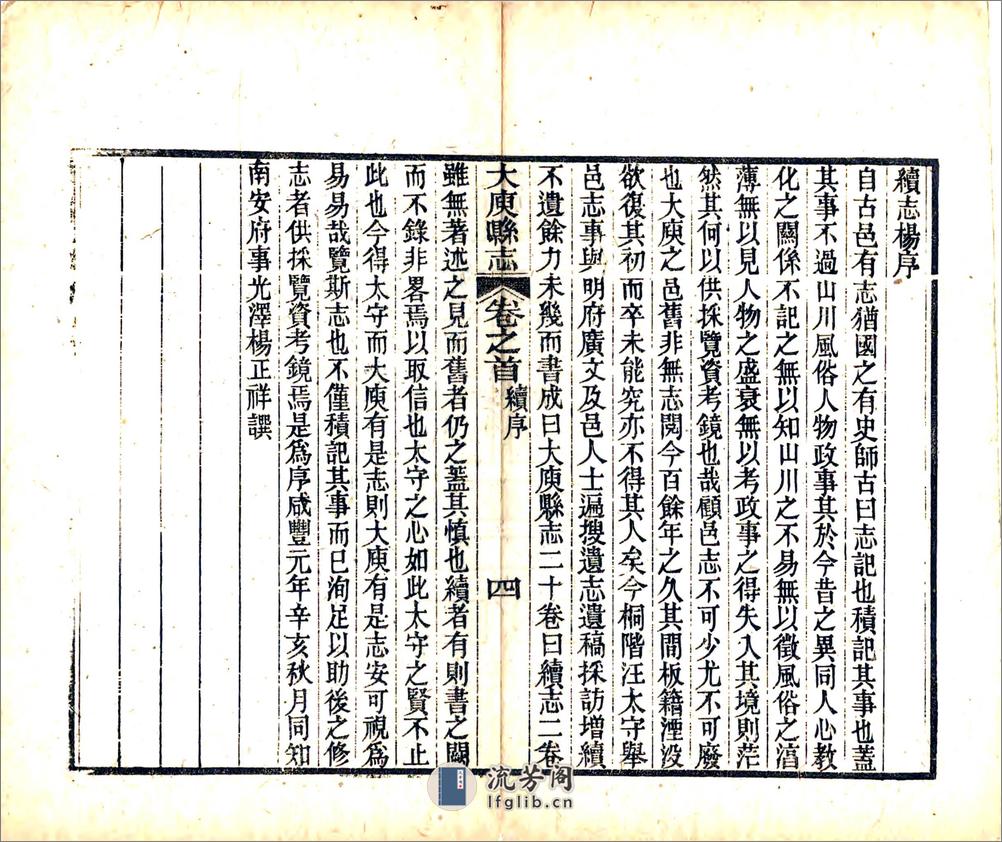 續志楊序
自古邑有志猶國之有史師古曰志記也積記其事也蓋
其事不過山川風俗人物政事其於今昔之異同人心教
化之關係不記之無以知山川之不易無以徵風俗之湻
薄無以見人物之盛衰無以考政事之得失入其境則茫
然其何以供採覽資考鏡也哉顧邑志不可少尤不可廢
也大庾之邑舊非無志閱今百餘年之久其間板籍湮没
欲復其初而卒未能究亦不得其人矣今桐階汪太守舉
邑志事與明府廣文及邑人士遍搜遺志遺稿採訪增續
不遺餘力未幾而書成曰大庾縣志二十卷曰續志二卷
大庾縣志 卷之首 續序 四
雖無著述之見而舊者仍之蓋其慎也續者有則書之闕
而不錄非畧焉以取信也太守之心如此太守之賢不止
此也今得太守而大庾有是志則大庾有是志安可視爲
易易哉覽斯志也不僅積記其事而已洵足以助後之修
志者供採覽資考鏡焉是爲序咸豐元年辛亥秋月同知
南安府事光澤楊正祥譔
流芳阁
lfglib.cn